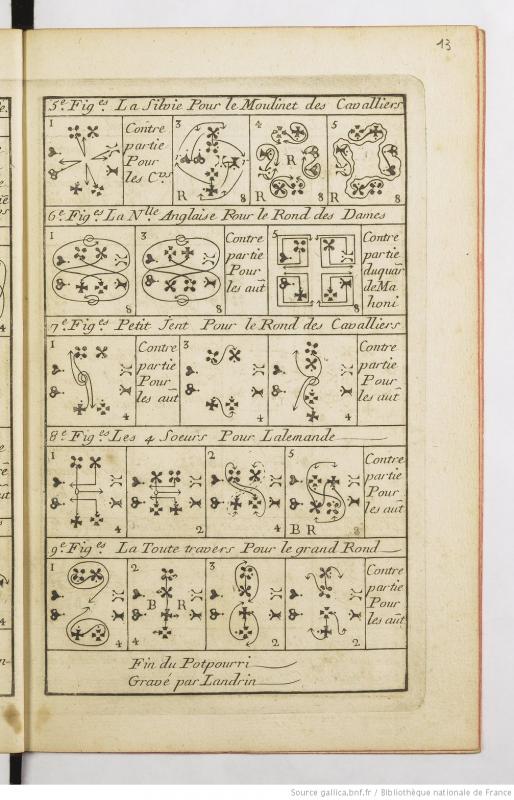 13
5.e Fig.es La Silvie Pour le Moulinet des Cavalliers
1
Contre
partie
Pour
les C.vs
3
R
8
4
R
8
5
R
8
6.e Fig.es La N.lle Anglaise Pour le Rond des Dames
1
8
3
8
Contre
partie
Pour
les aut
5
8
Contre
partie
du quar
de Ma
honi
7.e Fig.es Petit Jent Pour le Rond des Cavalliers
1
4
Contre
partie
Pour
les aut
3
4
4
Contre
partie
Pour
les aut
8.e Fig.es Les 4 Soeurs Pour Lalemande
1
4
2
2
4
5
B R
8
Contre
partie
Pour
les aut
9.e Fig.es La Toute travers Pour le grand Rond
1
4
2
B R
4
3
2
2
Contre
partie
Pour
les aut
Fin du Potpourri
Gravé par Landrin
Source gallica.bnf.fr / Bibliothèque nationale de France